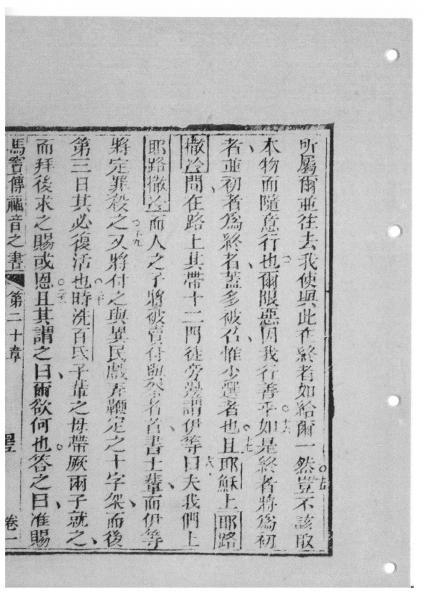 所屬爾並往去我使與此在終者如給爾一然豈不該取
本物而隨意行也爾眼惡因我行善乎如是終者將為初
者並初者為終者蓋多被召惟少選者也且耶穌上耶路
撒冷間在路上其帶十二門徒旁邊謂伊等曰夫我們上
耶路撒冷而人之子將被賣付與祭者首書士輩而伊等
將定罪殺之又將付之與異民戲弄鞭定之十字架而後
第三日其必復活也時洗百氏子輩之母帶厥兩子就之
而拜後求之賜或恩且其謂之曰爾欲何也答之曰准賜
馬竇傳福音之書 第二十章 卷一